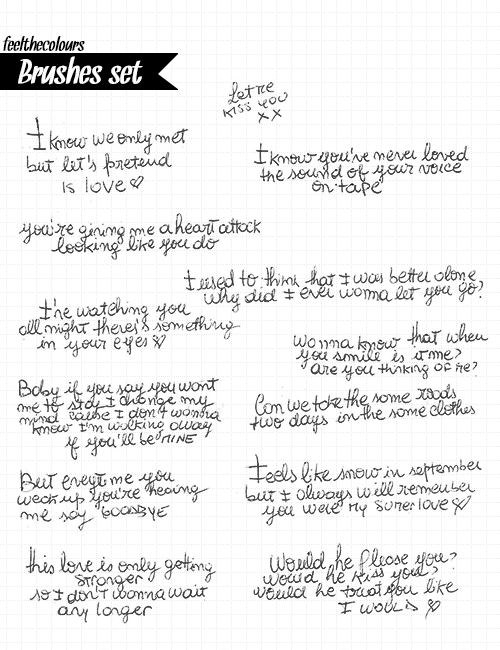 feelthecolours
Brushes set
Let me
kiss you
xx
I know we only met
but let's pretend
is love
I know you've never loved
the sound of your voice
on tape
you're giving me a heart attack
looking like you do
I used to think that I was better alone
why did I ever wanna let you go?
I've watching you
all night there's something
in your eyes
Wanna know that when
you smile is it me?
Are you thinking of me?
Baby if you say you want
me to stay I change my
mind 'cause I don't wanna
know I'm walking away
if you'll be MINE
Can we take the same roads
two days in the same clothes
But everytime you
weak up you're hearing
me say GOODBYE
Feels like snow in september
but I always will remember
you were my summerlove
this love is only getting
stronger
so I don't wanna wait
any longer
Would he please you?
would he kiss you?
would he treat you like
I would